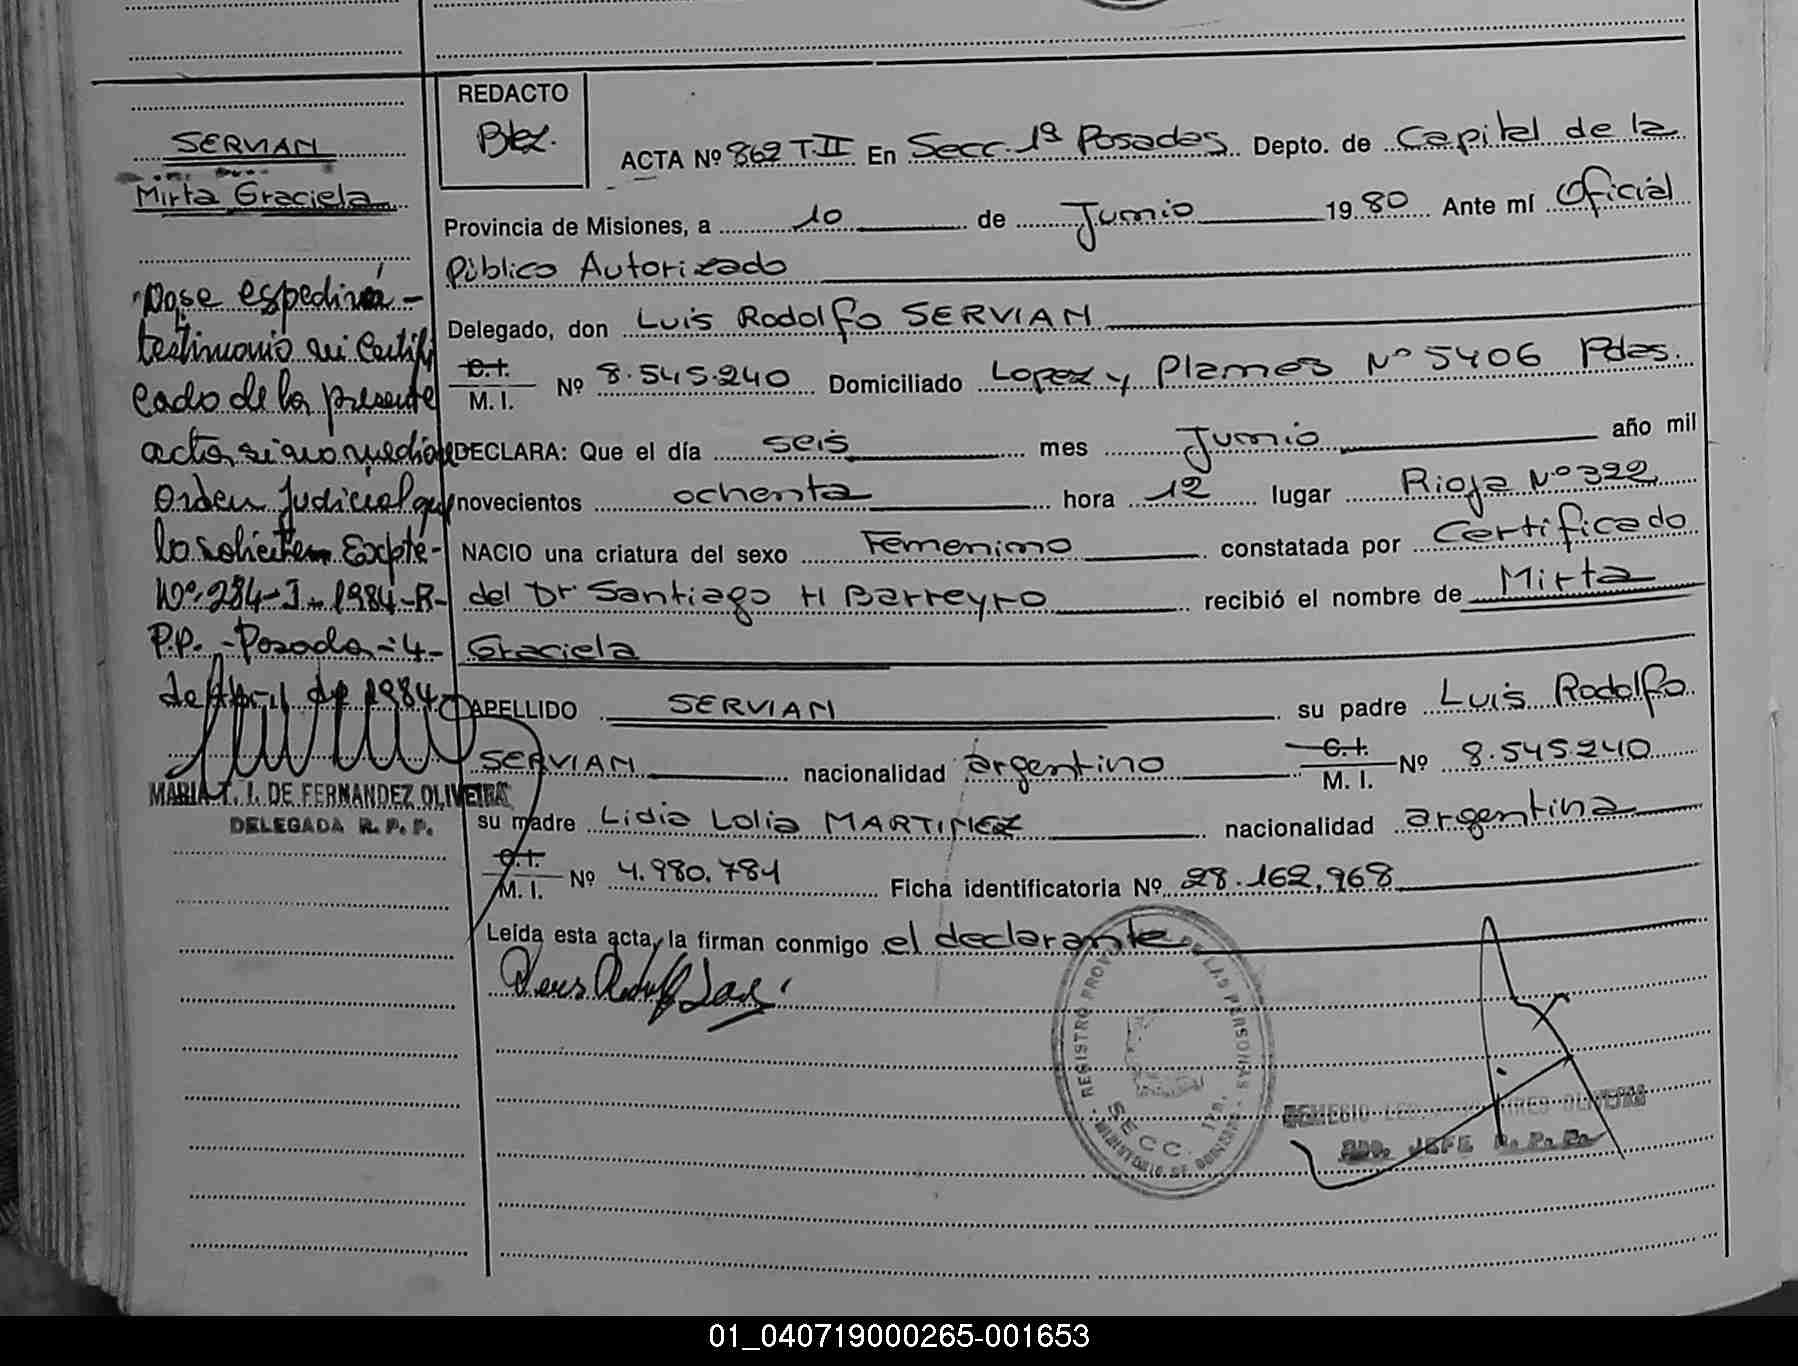 SERVIAN
Mirta Graciela
No se espedirá
testimonio ni Certifi
cado de la presente
acta si no mediare
Orden Judicial que
lo solicite. Expte-
Nº 284-J-1984-R-
P.P. - Posadas - 4-
de Abril de 1984
MARIA T. I. DE FERNANDEZ OLIVEIRA
DELEGADA R. P. P.
REDACTO
ACTA Nº 862 T.II En Secc. 1ª Posadas Depto. de Capital de la
Provincia de Misiones, a 10 de Junio 1980 Ante mí Oficial
Público Autorizado
Delegado, don Luis Rodolfo SERVIAN
C.I.
M. I. Nº 8.545.240 Domiciliado Lopez y Planes Nº 5406 Pdas.
DECLARA: Que el día seis mes Junio año mil
novecientos ochenta hora 12 lugar Rioja Nº 322
NACIO una criatura del sexo Femenino constatada por Certificado
del Dr Santiago H Barreyro recibió el nombre de Mirta
Graciela
APELLIDO SERVIAN su padre Luis Rodolfo
SERVIAN nacionalidad argentino C.I. M. I. Nº 8.545.240
su madre Lidia Lolia MARTINEZ nacionalidad argentina
C.I.
M. I. Nº 4.980.781 Ficha identificatoria Nº 28.162.968
Leída esta acta, la firman conmigo el declarante
REGISTRO PROV. DE LAS PERSONAS
SECC. 1ra.
JEFE R. P. P.
01_040719000265-001653